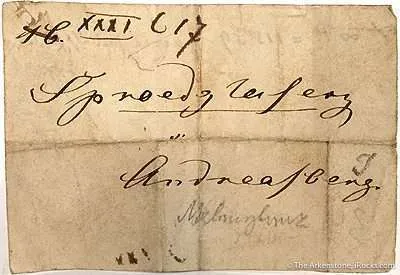 Ab. XXXI 617
Sproedglaserz
Andreasberg.
Melanglanz
The Arkenstone, iRocks.com